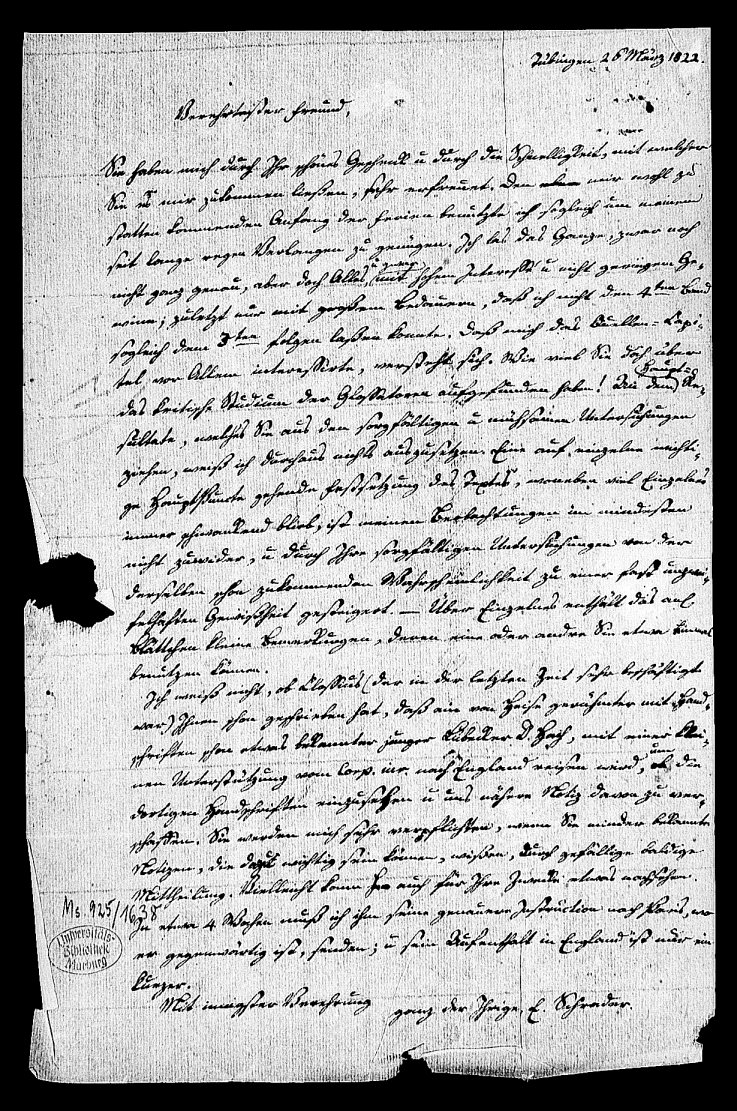 Tübingen 26 März 1822.
Verehrtester Freund,
Sie haben mich durch Ihr schönes Geschenk u durch die Schnelligkeit, mit welcher
Sie es mir zukommen ließen, sehr erfreuet. Den mir wohl zu
statten kommenden Anfang der Ferien benutzte ich sogleich um meinem
seit lange regen Verlangen zu genügen. Ich las das Ganze, zwar noch
nicht ganz genau, aber doch Alles, mit hohem Interesse u nicht geringem Ge-
winn; zuletzt nur mit großem Bedauern, daß ich nicht den 4ten Band
sogleich dem 3ten folgen lassen konnte. Daß mich das Quellen-Capi-
tel vor Allem interessirte, versteht sich. Wie viel Sie doch über
das kritische Studium der Glossatoren aufgefunden haben! An dem Haupt Re-
sultate, welches Sie aus den sorgfältigen u mühsamen Untersuchungen
ziehen, weiß ich durchaus nichts auszusetzen. Eine auf einzelne wichti-
ge Hauptpuncte gehende Festsetzung des Textes, woneben viel Einzelnes
immer schwankend blieb, ist meinen Beobachtungen im mindesten
nicht zuwider, u durch Ihre sorgfältigen Untersuchungen von der
derselben schon zukommenden Wahrscheinlichkeit zu einer fast unzwei-
felhaften Gewißheit gesteigert. — Über Einzelnes enthält das anl
Blättchen kleine Bemerkungen, deren eine oder andre Sie etwa einmal
benutzen können.
Ich weiß nicht, ob Clossius (der in der letzten Zeit sehr beschäftigt
war) Ihnen schon geschrieben hat, daß ein von Heise gerühmter mit Hand-
schriften schon etwas bekannter junger Lübecker D. Hach, mit einer klei-
nen Unterstützung vom Corp. iur. nach England reisen wird, um die
dortigen Handschriften einzusehen u uns nähere Notiz davon zu ver-
schaffen. Sie werden mich sehr verpflichten, wenn Sie minder bekannte
Notizen, die dazu wichtig sein können, wissen, durch gefällige baldige
Mittheilung. Vielleicht kann Hach auch für Ihre Zwecke etwas nachsehen.
In etwa 4 Wochen muß ich ihm seine genauere Instruction nach Paris, wo
er gegenwärtig ist, senden; u sein Aufenthalt in England ist nur ein
kurzer.
Mit innigster Verehrung ganz der Ihrige, E. Schrader.
Ms. 925/1638
Universitäts-
Bibliothek
Marburg